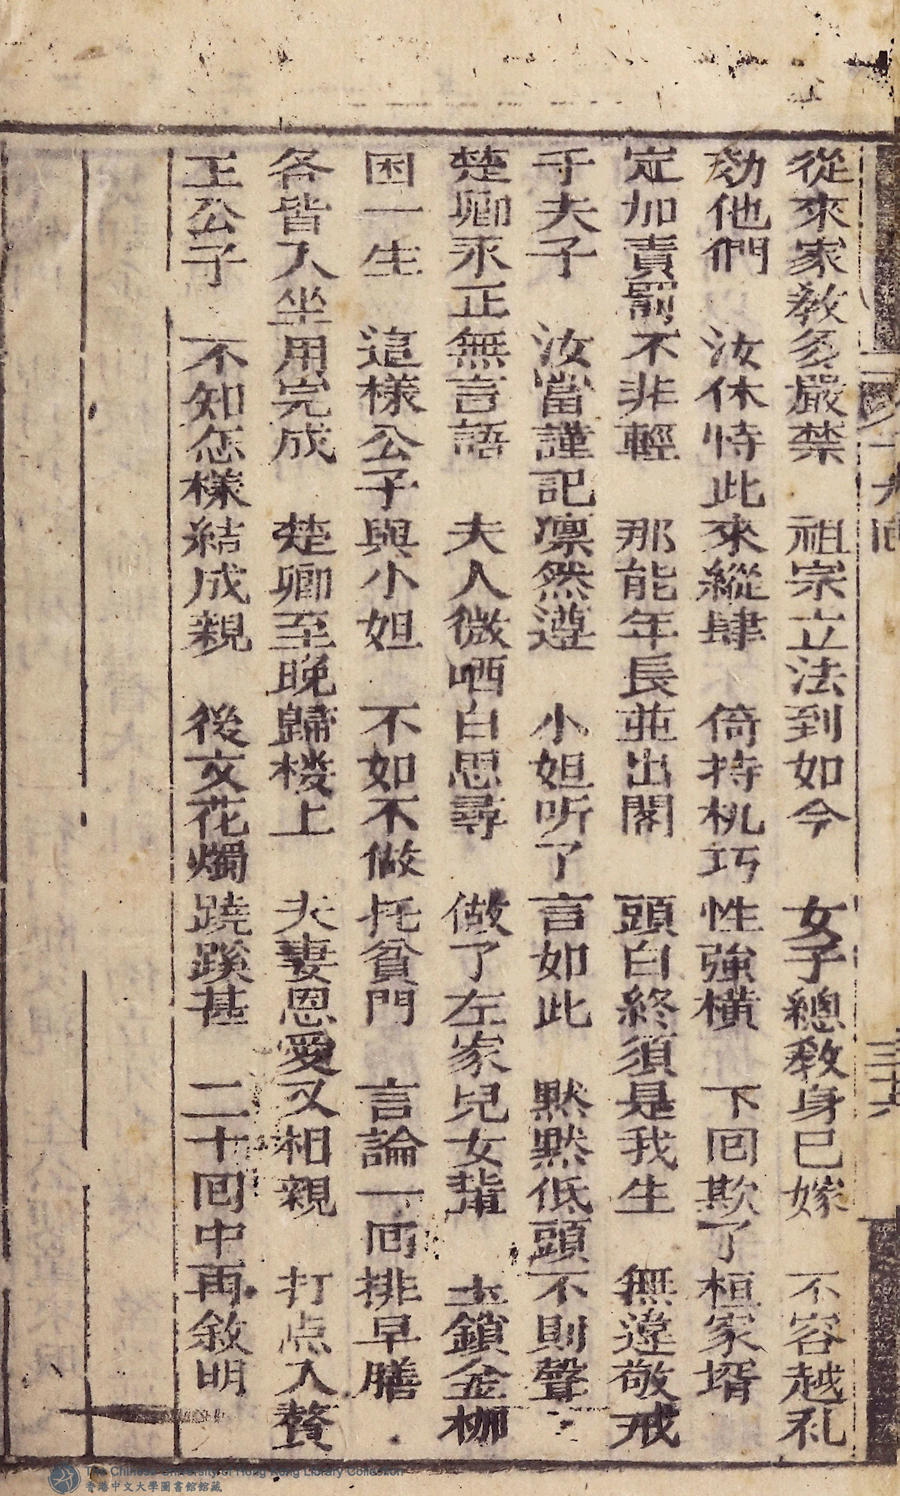 從來家教多嚴禁　祖宗立法到如今　女子總教身已嫁　不容越礼
効他們　汝休恃此來縱肆　倚持机巧性強橫　下囘欺了桓家壻
定加責罰不非輕　那能年長並出閣　頭白終須是我生　無違敬戒
于夫子　汝當謹記凛然遵　小姐听了言如此　黙黙低頭不則聲
楚卿永正無言語　夫人微哂自思尋　做了左家兒女輩　玉鎖金枷
困一生　這樣公子與小姐　不如不做托貧門　言論一囘排早膳
各皆入坐用完成　楚卿至晚歸楼上　夫妻恩愛又相親　打点入贅
王公子　不知怎樣結成親　後文花燭蹺蹊甚　二十囘中再敘明
十九囘
三十六
The Chinese University of Hong Kong Library Collection
香港中文大學圖書館館藏